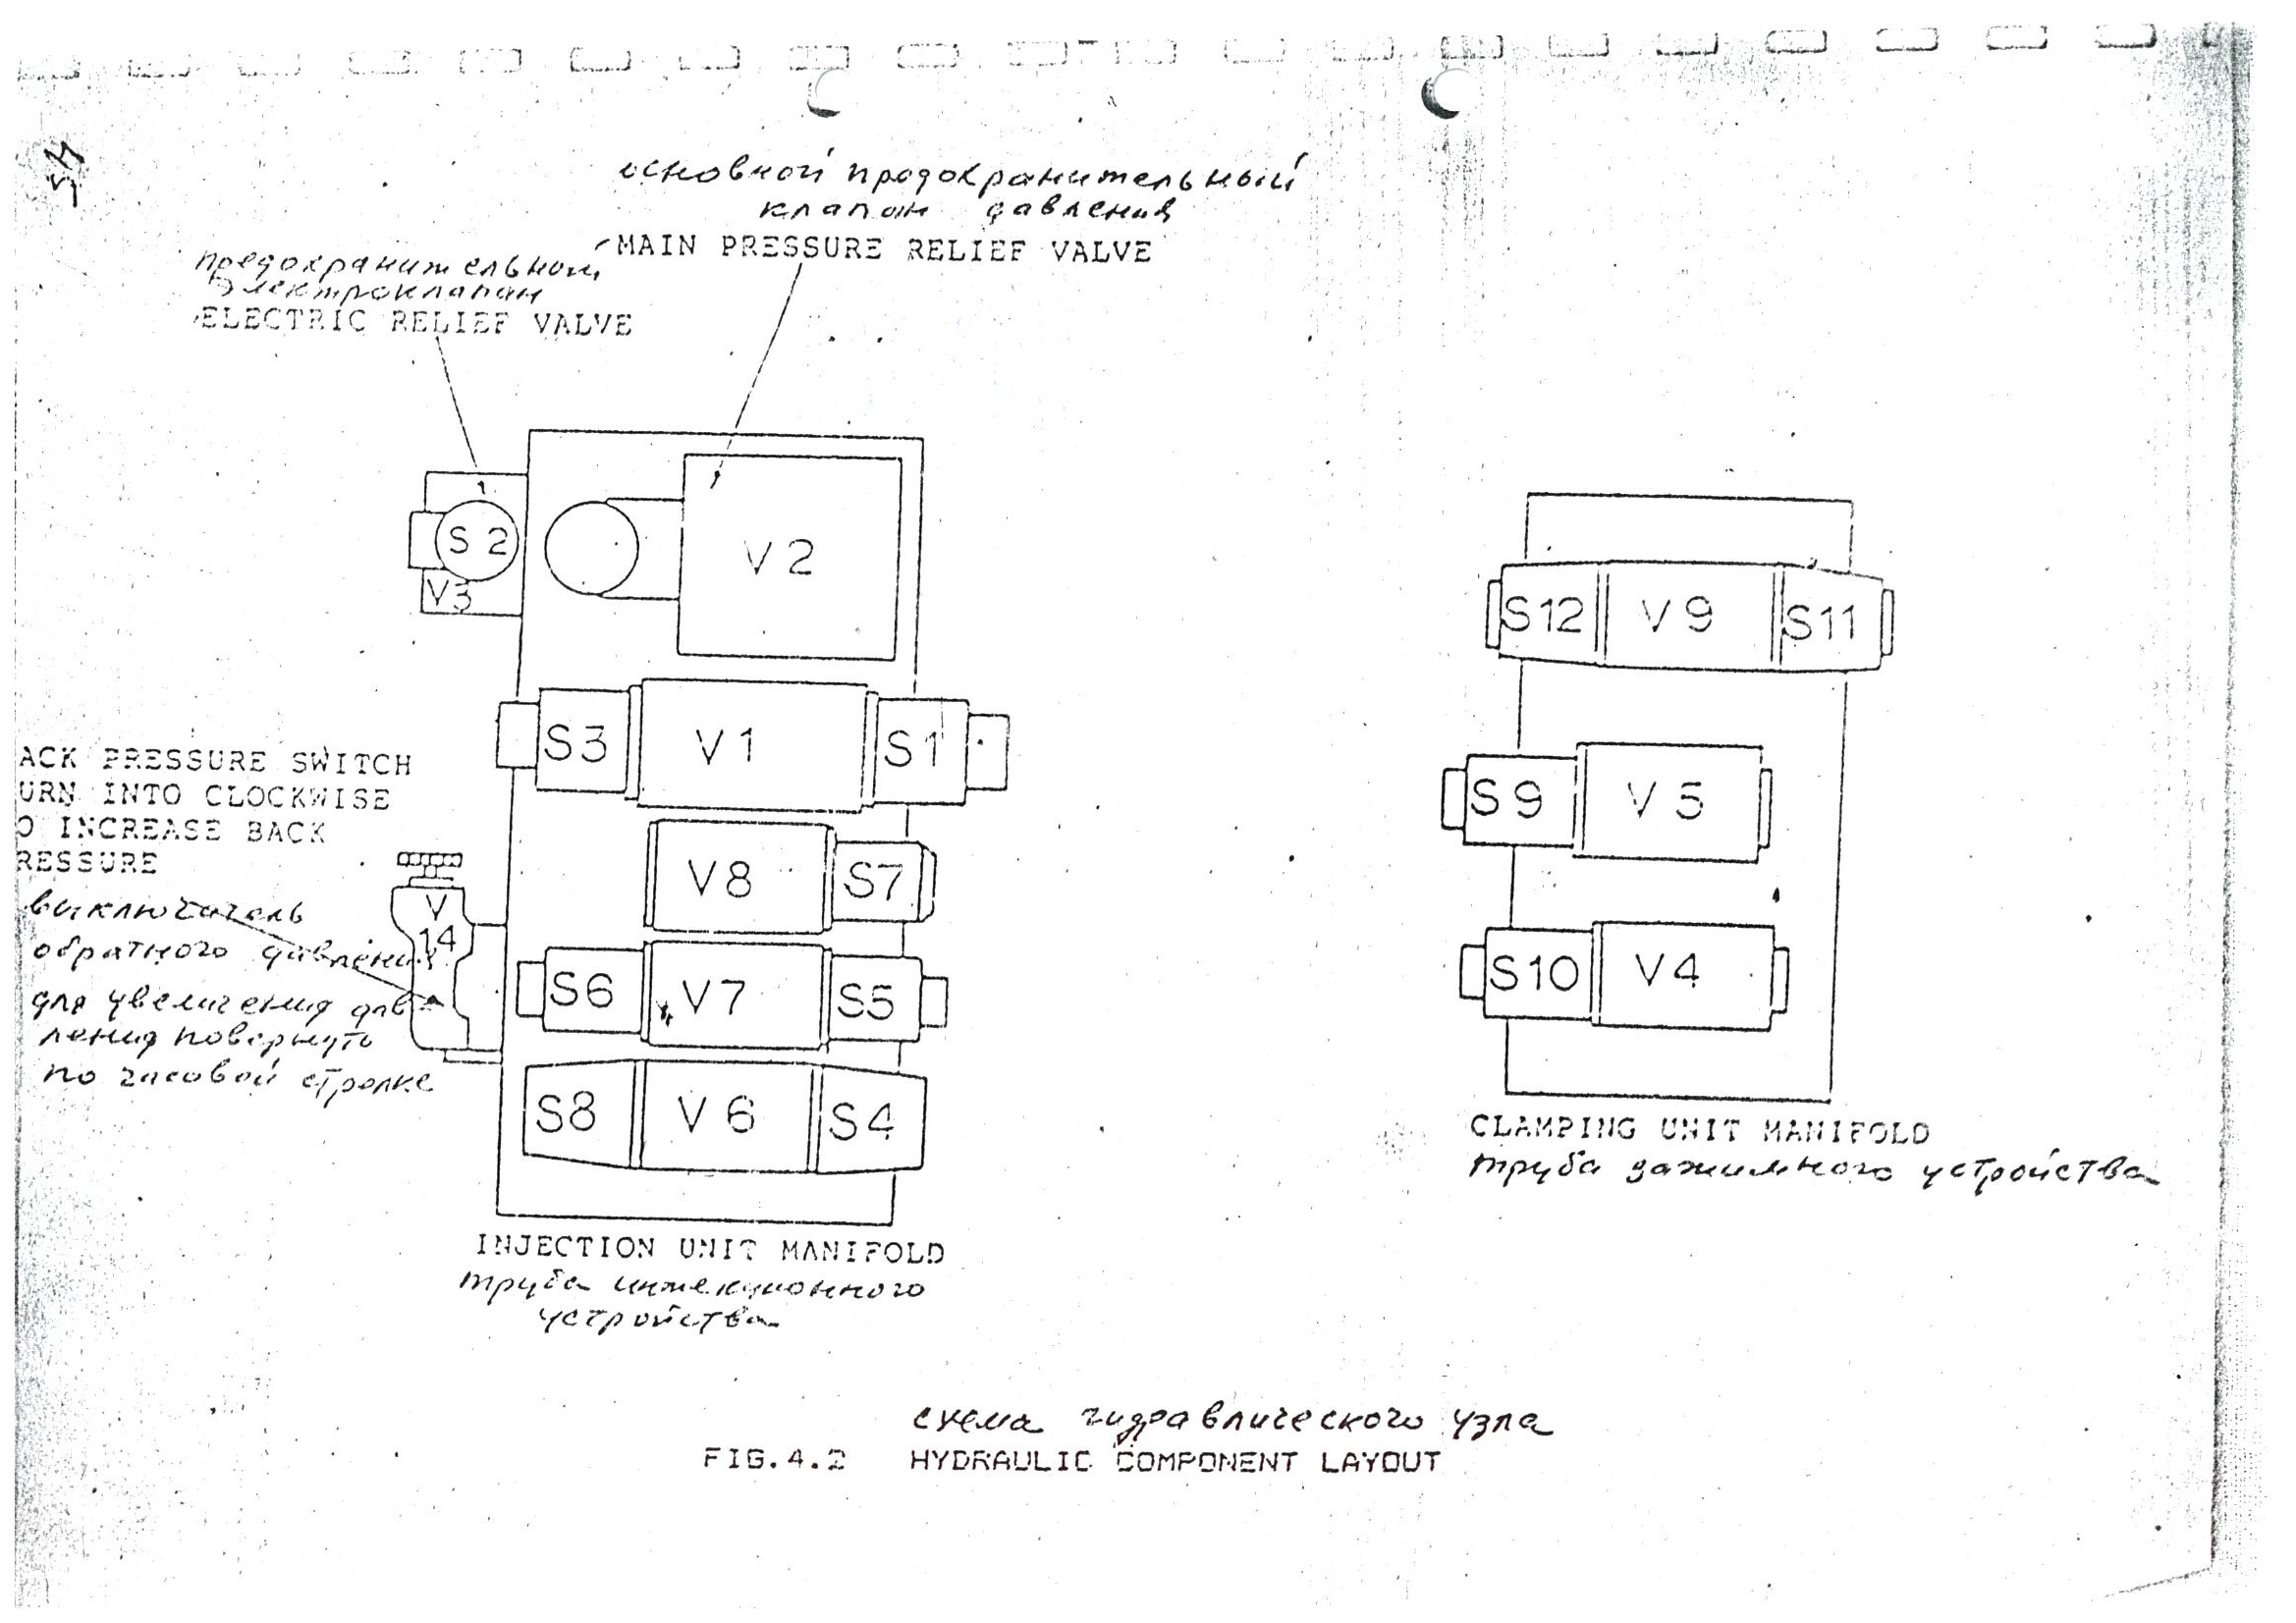 54
основной предохранительный
клапан давления
MAIN PRESSURE RELIEF VALVE
предохранительный
электроклапан
ELECTRIC RELIEF VALVE
S 2
V3
V 2
S3 V 1 S1
V 8 S7
S6 V 7 S5
S8 V 6 S4
V
14
ACK PRESSURE SWITCH
URN INTO CLOCKWISE
O INCREASE BACK
RESSURE
выключатель
обратного давления
для увеличения дав
ления повернуть
по часовой стрелке
S12 V 9 S11
S9 V 5
S10 V 4
CLAMPING UNIT MANIFOLD
труба зажимного устройства
INJECTION UNIT MANIFOLD
труба инжекционного
устройства
схема гидравлического узла
FIG.4.2 HYDRAULIC COMPONENT LAYOUT